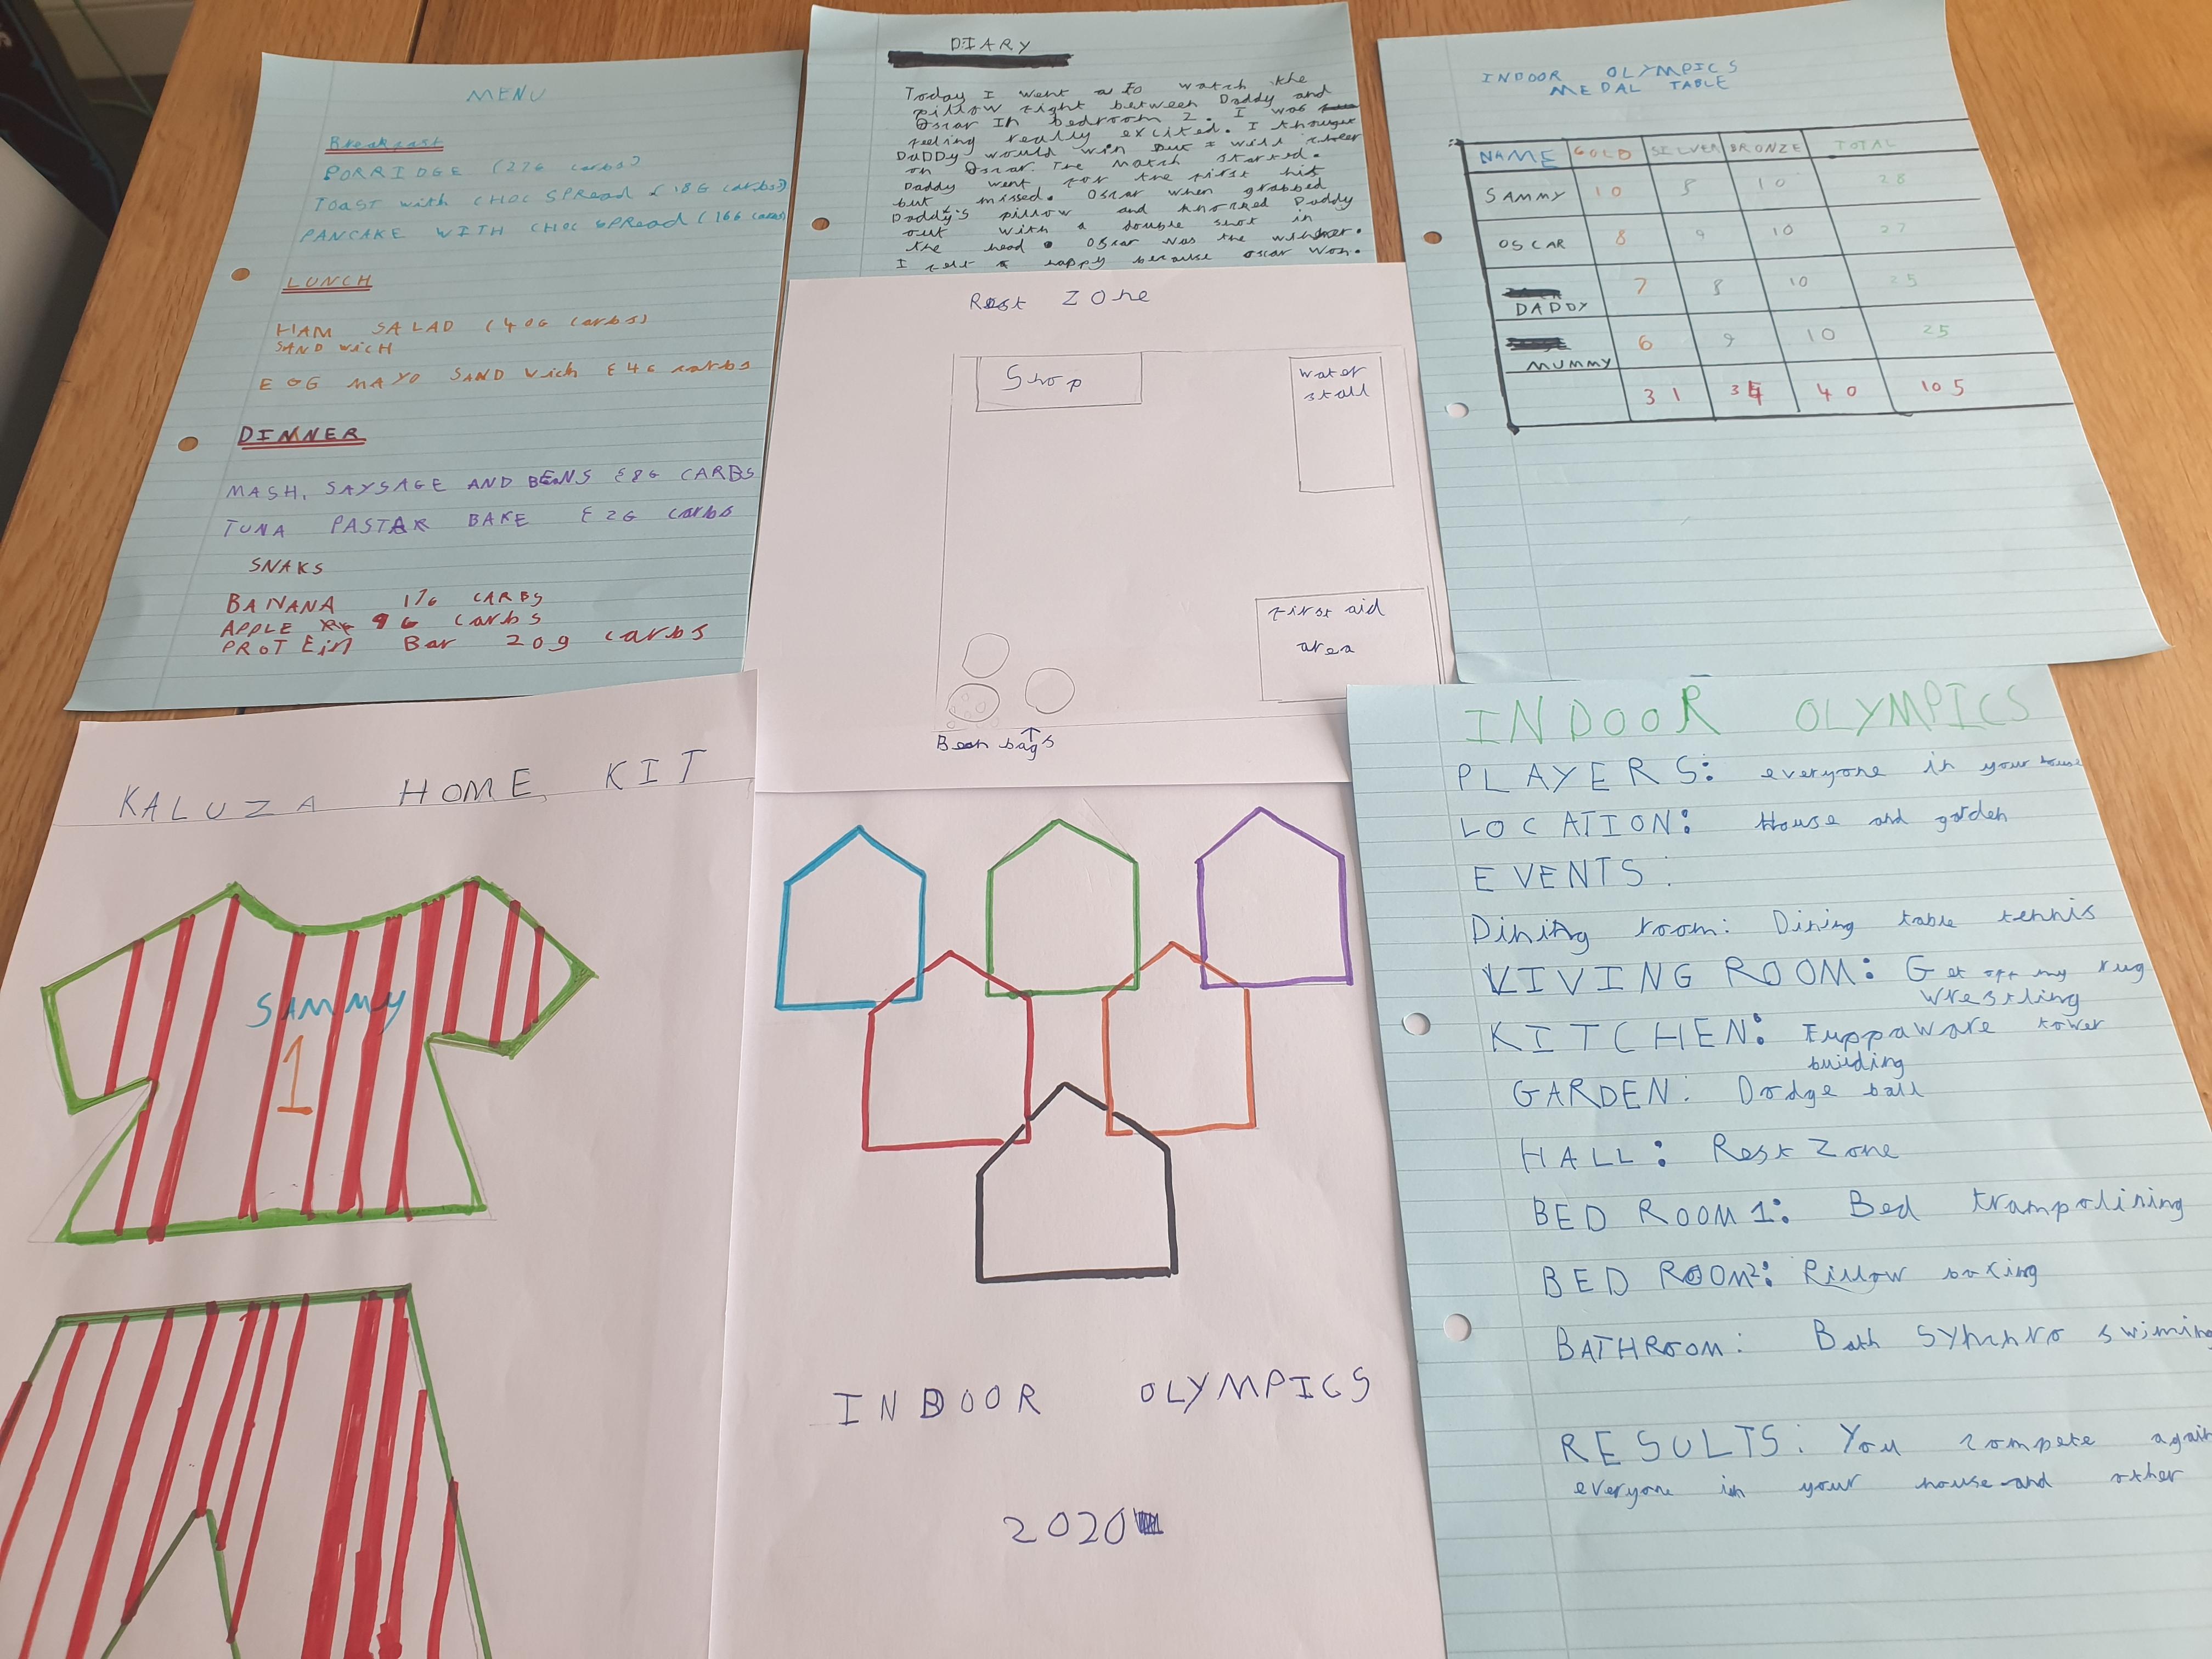 MENU
Breakfast
PORRIDGE (27G carbs)
TOAST with CHOC SPREAd (18G carbs)
PANCAKE WITH CHOC SPRead (16G carbs)
LUNCH
HAM SALAD (40G carbs)
SAND wicH
EGG MAYO SAND wich £4G carbs
DINNER
MASH, SAYSAGE AND BEANS £8G CARBS
TUNA PASTA BAKE £2G carbs
SNAKS
BANANA 17G CARBS
APPLE 9G carbs
PROTEin Bar 20g carbs
DIARY
Today I went to watch the
pillow fight between Daddy and
Oscar In bedroom 2. I was
feeling really excited. I thought
DaDDy would win but I will cheer
on Oscar. The match started.
Daddy went for the first hit
but missed. Oscar when grabbed
Daddy's pillow and knocked Daddy
out with a double shot in
the head. Oscar was the winner.
I felt happy because oscar won.
INDOOR OLYMPICS
MEDAL TABLE
NAME GOLD SILVER BRONZE TOTAL
SAMMY 10 8 10 28
OSCAR 8 9 10 27
DADDY 7 8 10 25
MUMMY 6 9 10 25
31 34 40 105
Rest Zone
Shop
water
stall
First aid
area
Bean bags
KALUZA HOME KIT
SAMMY
1
INDOOR OLYMPICS
2020
INDOOR OLYMPICS
PLAYERS: everyone in your house
LOCATION: House and garden
EVENTS:
Dining room: Dining table tennis
LIVING ROOM: Get off my rug
wrestling
KITCHEN: Tuppaware tower
building
GARDEN: Dodge ball
HALL: Rest Zone
BED ROOM 1: Bed trampolining
BED ROOM 2: Pillow boxing
BATHROOM: Bath Synchro swiming
RESULTS: You compete again
everyone in your house and other